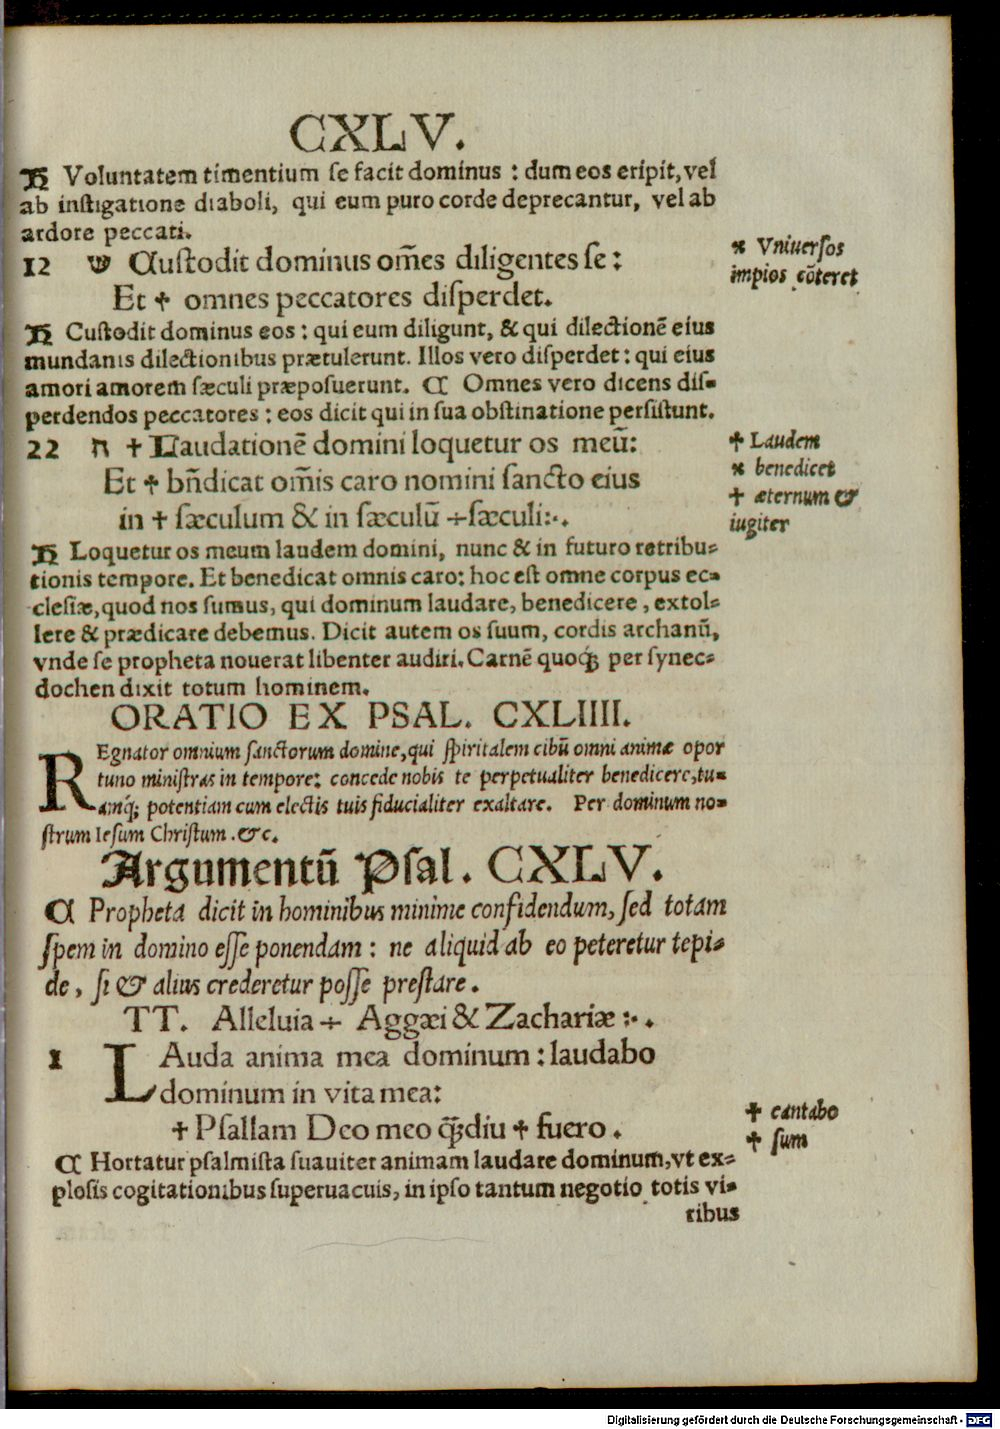 CXLV.
Ħ Voluntatem timentium ſe facit dominus : dum eos eripit, vel
ab inſtigatione diaboli, qui eum puro corde deprecantur, vel ab
ardore peccati.
12 ש Cuſtodit dominus om̄es diligentes ſe :
Et ✝ omnes peccatores diſperdet.
Ħ Cuſtodit dominus eos : qui eum diligunt, & qui dilectionē eius
mundanis dilectionibus prætulerunt. Illos vero diſperdet : qui eius
amori amorem ſæculi præpoſuerunt. ℂ Omnes vero dicens diſ-
perdendos peccatores : eos dicit qui in ſua obſtinatione perſiſtunt.
22 ת ✝ Laudationē domini loquetur os meū:
Et ✝ bn̄dicat om̄is caro nomini ſancto eius
in ✝ ſæculum & in ſæculū ÷ ſæculi:·.
Ħ Loquetur os meum laudem domini, nunc & in futuro retribu-
tionis tempore. Et benedicat omnis caro: hoc eſt omne corpus ec-
cleſiæ, quod nos ſumus, qui dominum laudare, benedicere , extol-
lere & prædicare debemus. Dicit autem os ſuum, cordis archanū,
vnde ſe propheta nouerat libenter audiri. Carnē quoq; per ſynec-
dochen dixit totum hominem.
ORATIO EX PSAL. CXLIIII.
REgnator omnium ſanctorum domine, qui ſpiritalem cibū omni animæ opor
tuno miniſtras in tempore: concede nobis te perpetualiter benedicere, tu-
amq́; potentiam cum electis tuis fiducialiter exaltare. Per dominum no-
ſtrum Ieſum Chriſtum .&c.
Argumentū Pſal. CXLV.
ℂ Propheta dicit in hominibus minime confidendum, ſed totam
ſpem in domino eſſe ponendam : ne aliquid ab eo peteretur tepi-
de , ſi & alius crederetur poſſe preſtare .
TT. Alleluia ÷ Aggæi & Zachariæ :·.
1 LAuda anima mea dominum : laudabo
dominum in vita mea:
✝ Pſallam Deo meo q̄ꝫdiu ✝ fuero .
ℂ Hortatur pſalmiſta ſuauiter animam laudare dominum, vt ex-
ploſis cogitationibus ſuperuacuis, in ipſo tantum negotio totis vi-
ribus
※ Vniuerſos
impios cōteret
✝ Laudem
※ benedicet
✝ æternum &
iugiter
✝ cantabo
✝ ſum
Digitalisierung gefördert durch die Deutsche Forschungsgemeinschaft - DFG